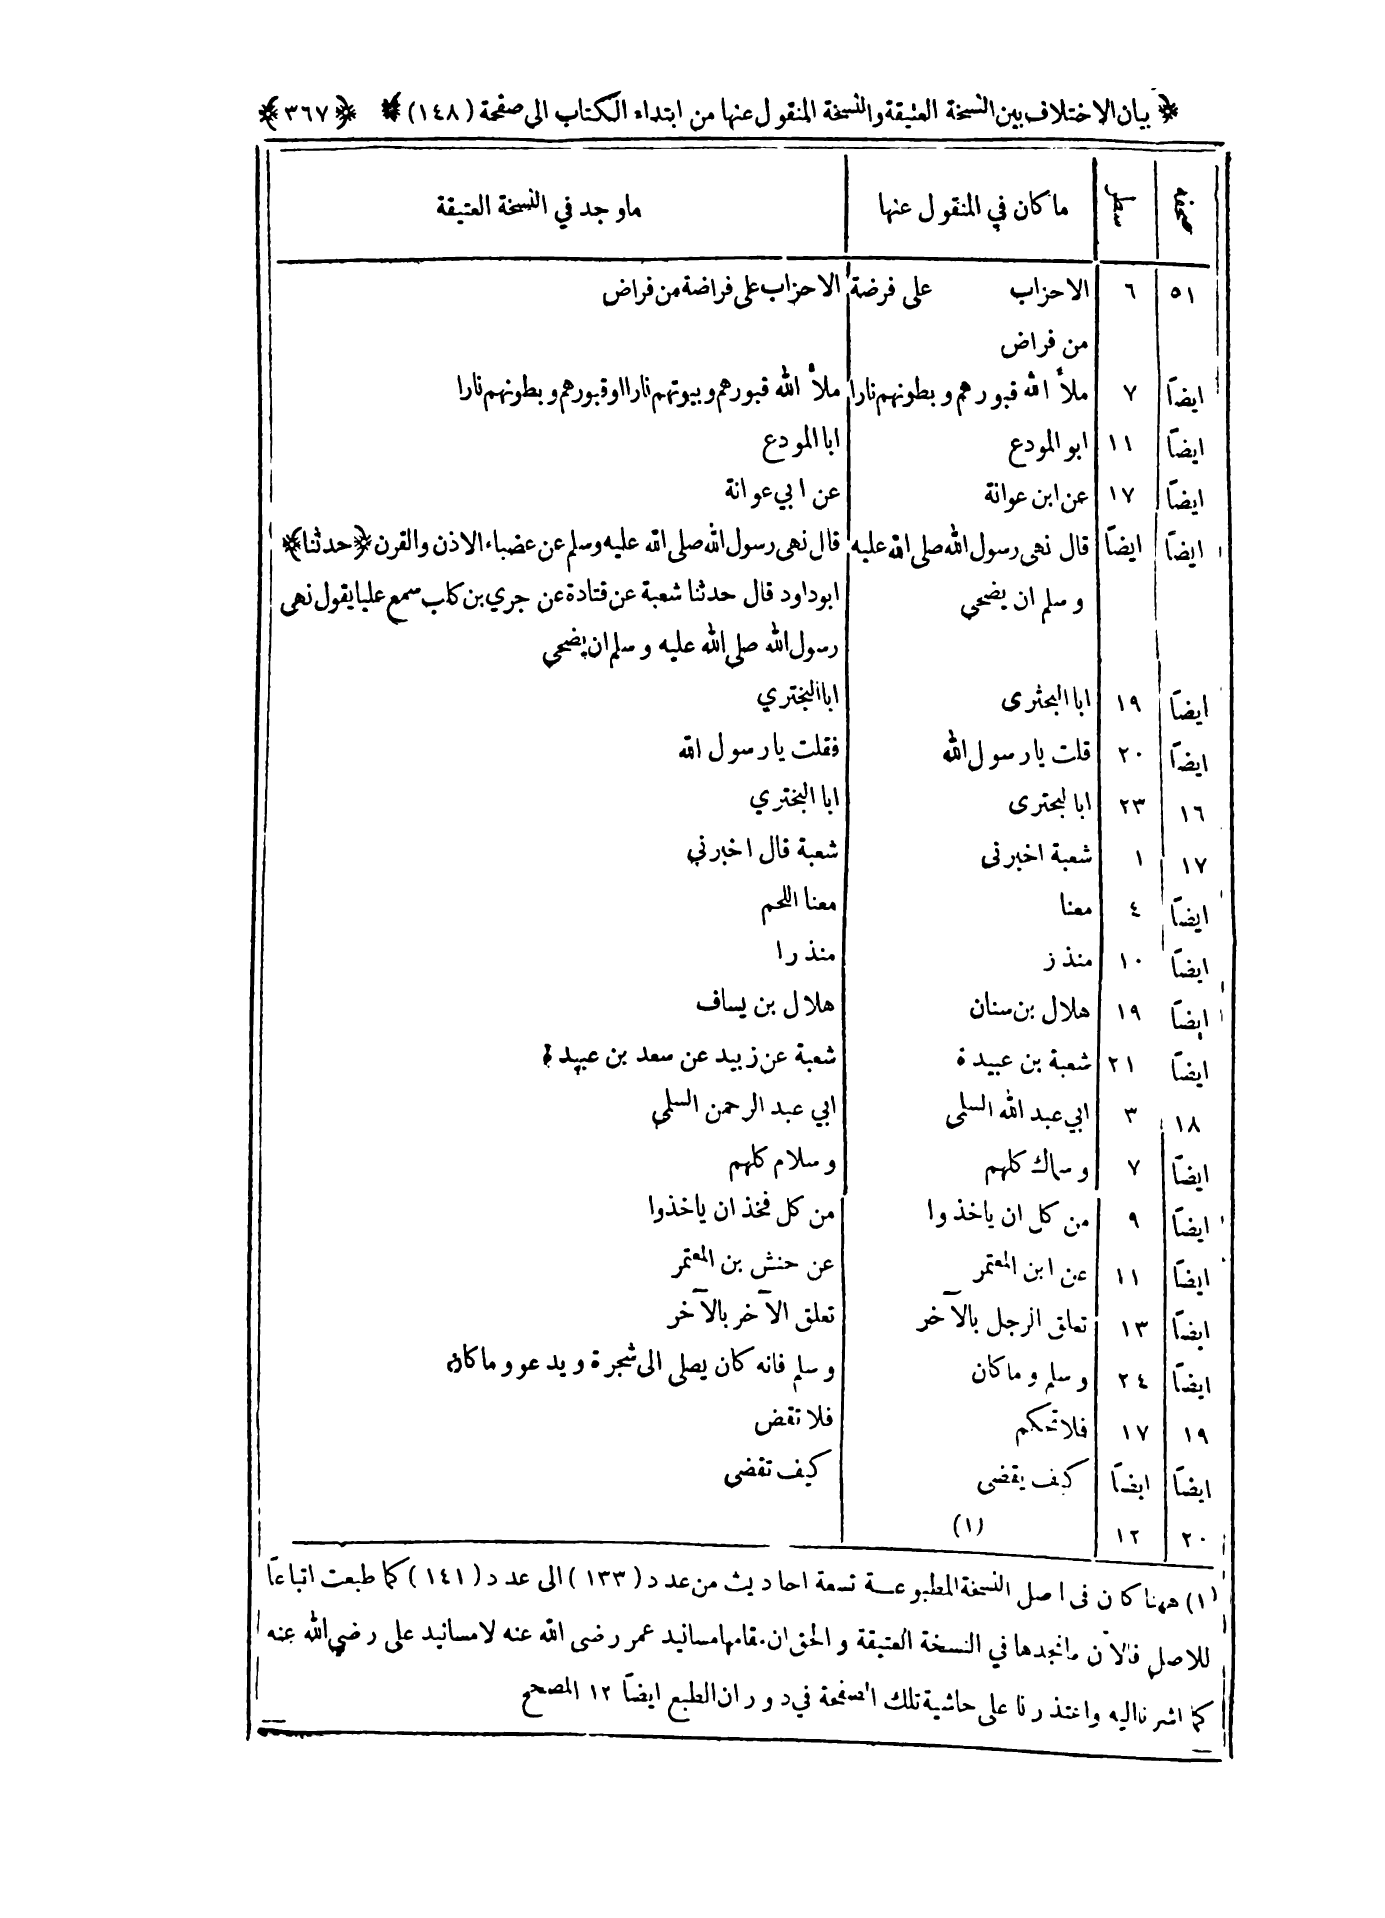 ﴿ بيان الاختلاف بين النسخة العتيقة والنسخة المنقول عنها من ابتداء الكتاب الى صفحة (١٤٨) ﴾ ﴿٣٦٧﴾
صحفة سطر ما كان في المنقول عنها ماوجد في النسخة العتيقة
٥١ ٦ الاحزاب على فرضة الاحزاب على فراضة من فراض
من فراض
ايضاً ٧ ملأ الله قبورهم وبطونهم نارا ملأ الله قبورهم وبيوتهم نارا اوقبورهم وبطونهم نارا
ايضاً ١١ ابو المودع ابا المودع
ايضاً ١٧ عن ابن عوانة عن ابي عوانة
ايضاً ايضاً قال نهى رسول الله صلى الله عليه قال نهى رسول الله صلى الله عليه وسلم عن عضباء الاذن والقرن ﴿حدثنا﴾
وسلم ان يضحي ابوداود قال حدثنا شعبة عن قتادة عن جري بن كاب سمع عليا يقول نهى
رسول الله صلى الله عليه وسلم ان يضحي
ايضاً ١٩ ابا البحثرى ابا البختري
ايضاً ٢٠ قلت يا رسول الله فقلت يا رسول الله
١٦ ٢٣ ابا لبحترى ابا البختري
١٧ ١ شعبة اخبرنى شعبة قال اخبرني
ايضاً ٤ معنا معنا اللحم
ايضاً ١٠ منذر منذرا
ايضاً ١٩ هلال بن سنان هلال بن يساف
ايضاً ٢١ شعبة بن عبيدة شعبة عن زبيد عن سعد بن عبيدة
١٨ ٣ ابي عبد الله السلمى ابي عبد الرحمن السلمى
ايضاً ٧ وسماك كلهم وسلام كلهم
ايضاً ٩ من كل ان ياخذوا من كل فخذ ان ياخذوا
ايضاً ١١ عن ابن المعتمر عن حنش بن المعتمر
ايضاً ١٣ تعلق الرجل بالآخر تعلق الآخر بالآخر
ايضاً ٢٤ وسلم وماكان وسلم فانه كان يصلى الى شجرة ويدعو وماكان
١٩ ١٧ فلا تحكم فلا تقض
ايضاً ايضاً كيف يقضى كيف تقضى
٢٠ ١٢ (١)
(١) ههنا كان فى اصل النسخة المطبوعة تسعة احاديث من عدد (١٣٣) الى عدد (١٤١) كما طبعت اتباعاً
للاصل فالآن مانجدها في النسخة العتيقة والحق ان مقامها مسانيد عمر رضى الله عنه لا مسانيد على رضي الله عنه
كما اشرنا اليه واعتذرنا على حاشية تلك الصفحة في دوران الطبع ايضاً ١٢ المصحح